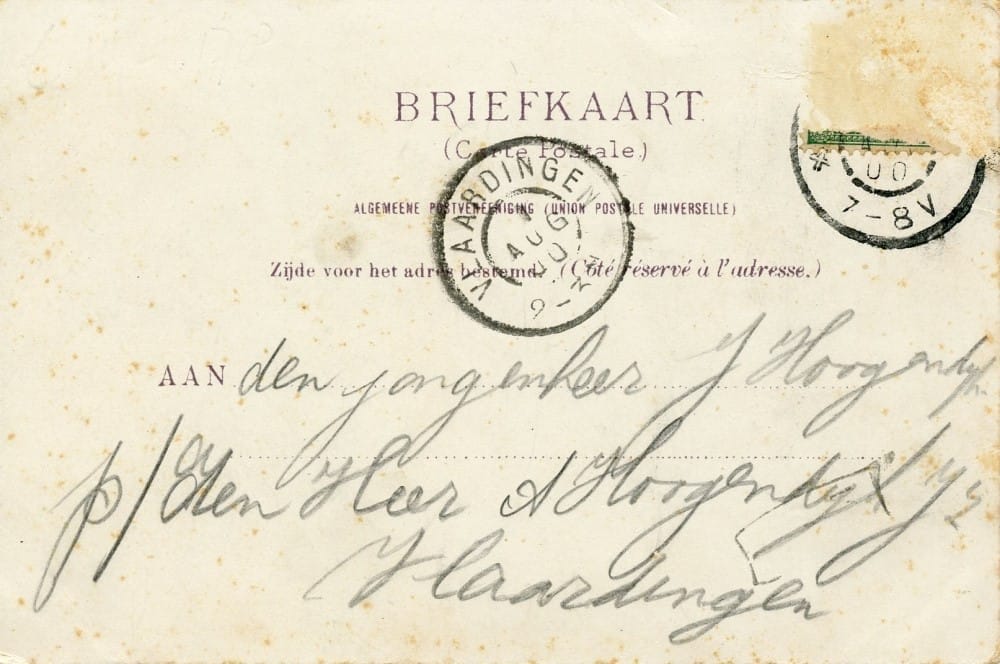 BRIEFKAART
(Carte Postale.)
ALGEMEENE POSTVEREENIGING (UNION POSTALE UNIVERSELLE)
Zijde voor het adres bestemd. (Côté réservé à l'adresse.)
VLAARDINGEN
1
AUG
00
2-3
00
7-8V
AAN den jongenheer J Hoogendyk
p/ den Heer A Hoogendyk
Vlaardingen